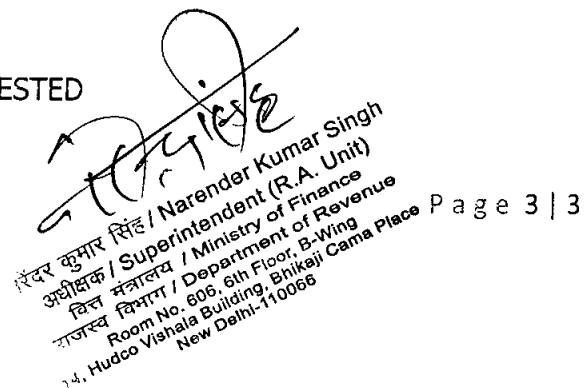 ESTED
रेंदर कुमार सिंह / Narender Kumar Singh
अधीक्षक / Superintendent (R.A. Unit)
वित्त मंत्रालय / Ministry of Finance
राजस्व विभाग / Department of Revenue
Room No. 606, 6th Floor, B-Wing
14, Hudco Vishala Building, Bhikaji Cama Place
New Delhi-110066
Page 3 | 3